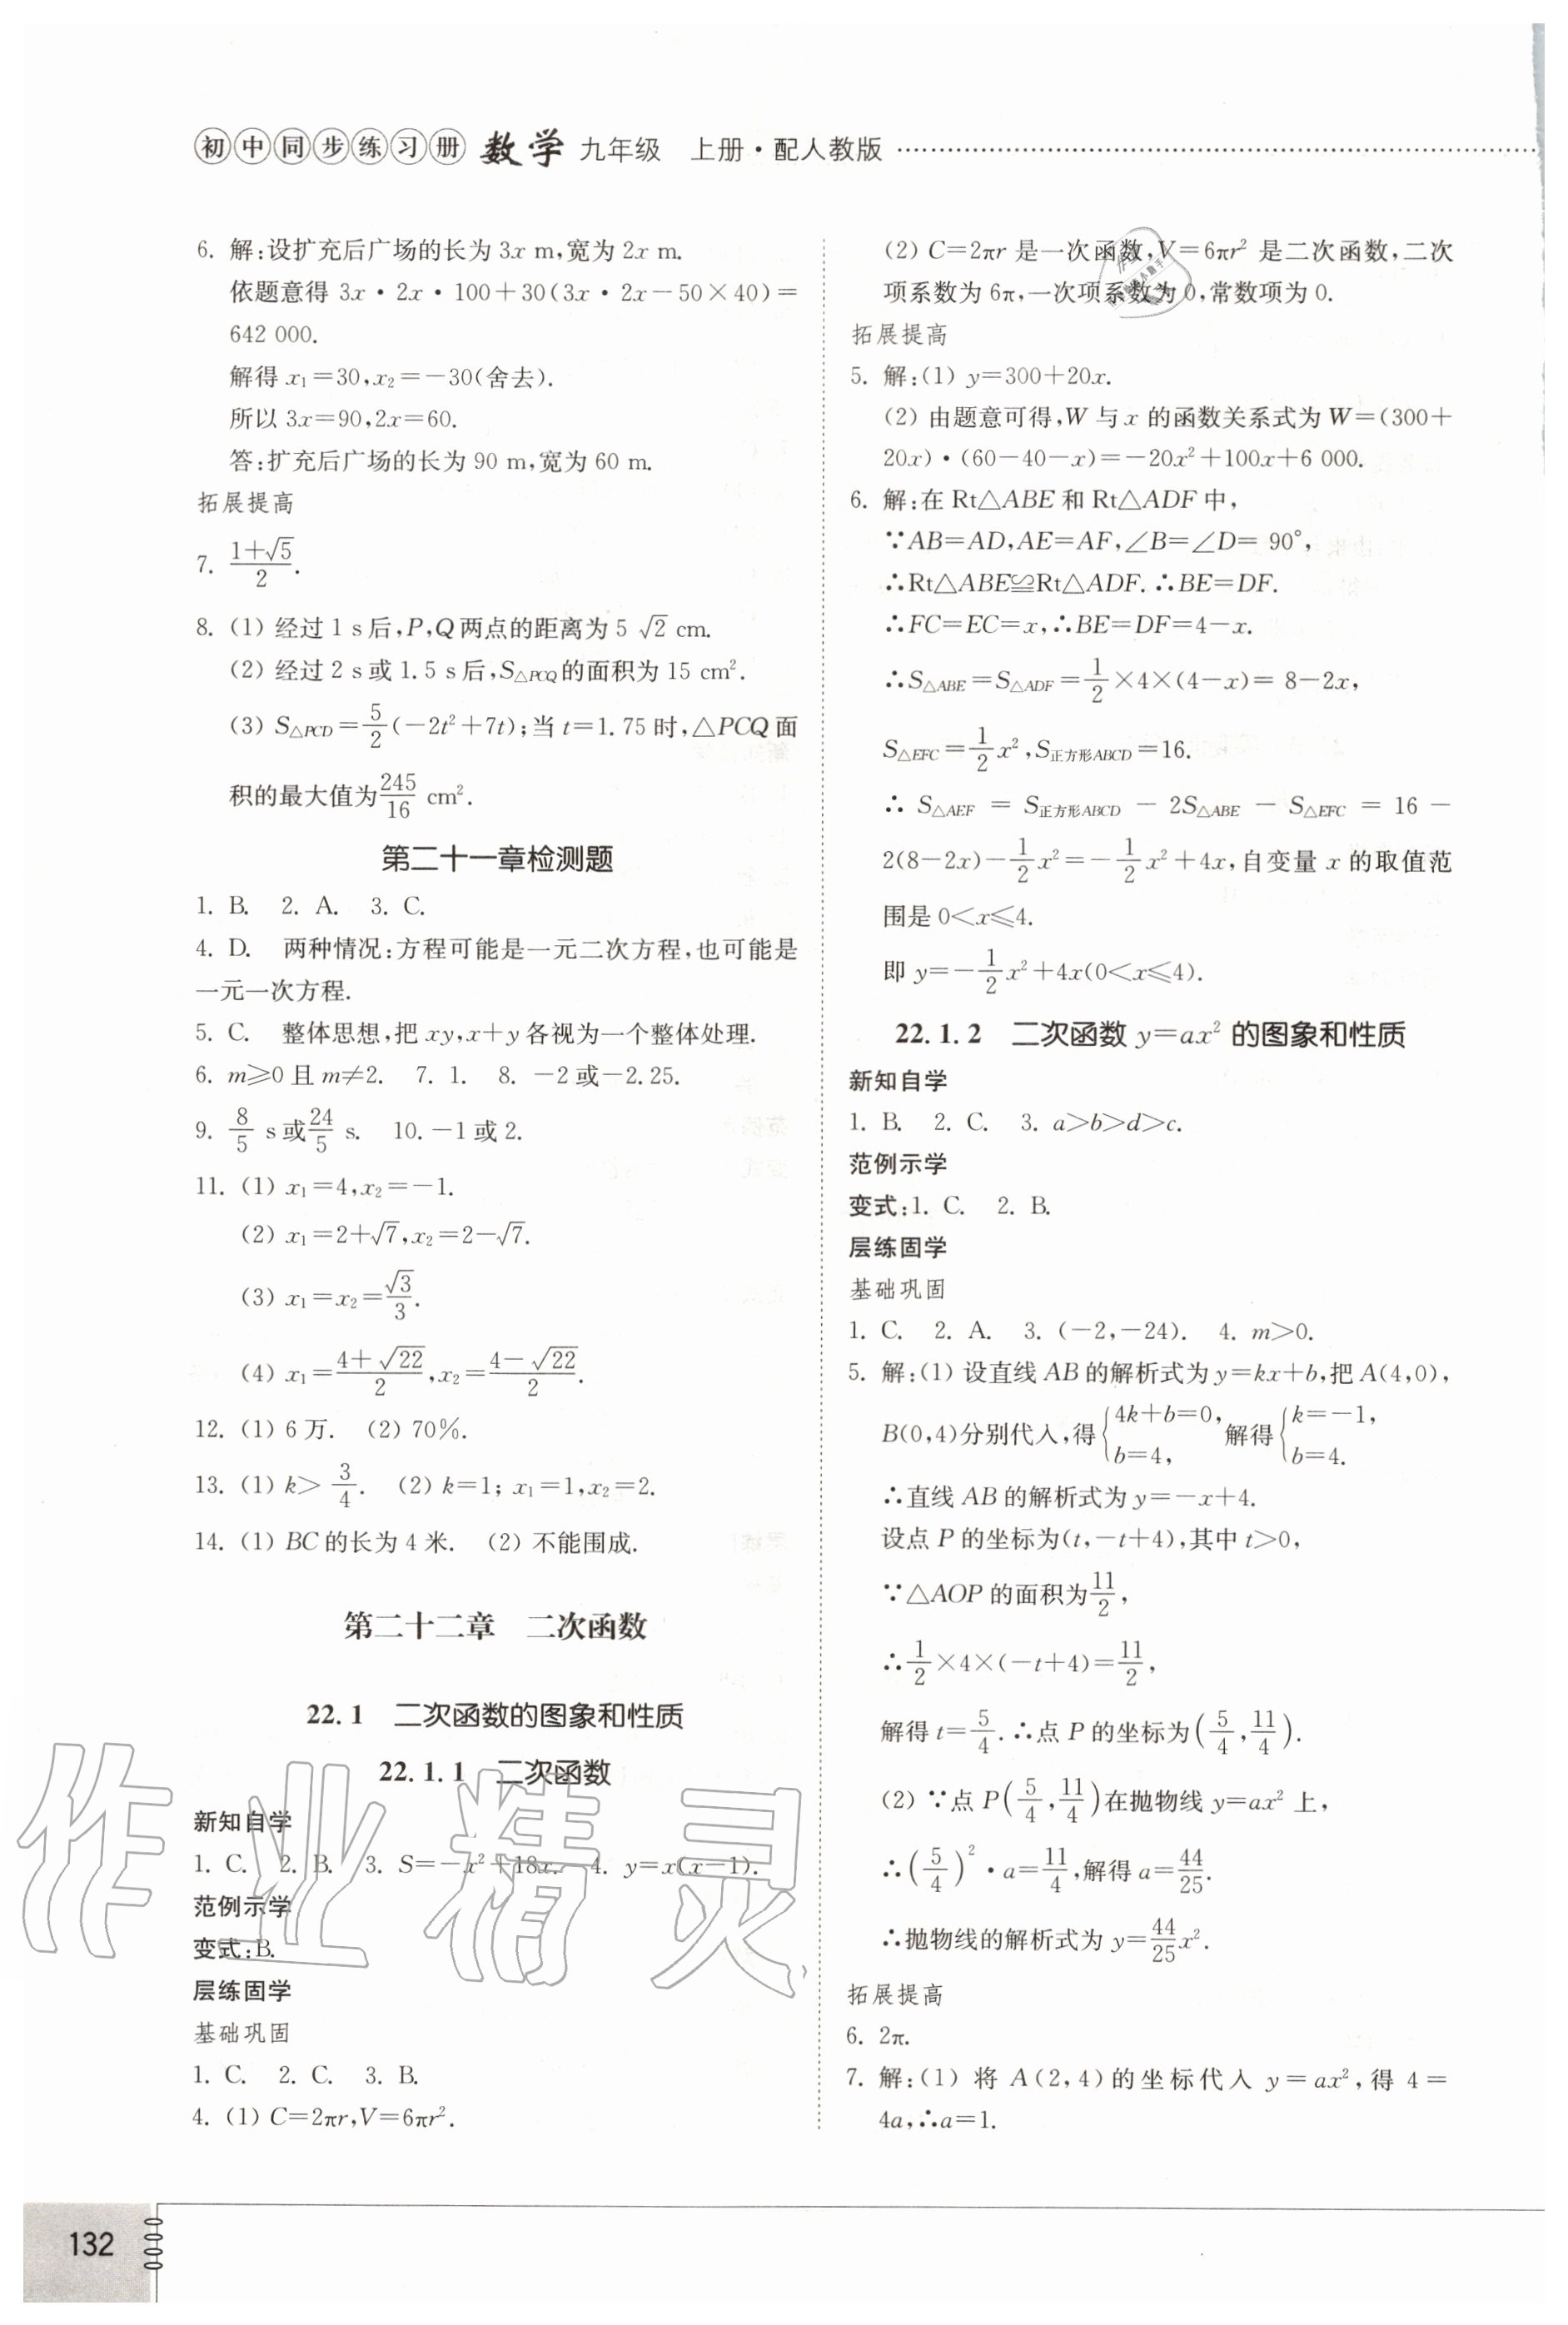 初中同步练习册 数学 九年级 上册·配人教版
6. 解:设扩充后广场的长为 3x m,宽为 2x m.
依题意得 3x·2x·100+30(3x·2x-50×40)=
642 000.
解得 x₁=30,x₂=-30(舍去).
所以 3x=90,2x=60.
答:扩充后广场的长为 90 m,宽为 60 m.
拓展提高
7. (1+√5)/2.
8. (1) 经过 1 s 后,P,Q 两点的距离为 5√2 cm.
(2) 经过 2 s 或 1.5 s 后,S△PCQ的面积为 15 cm².
(3) S△PCD=5/2(-2t²+7t);当 t=1.75 时,△PCQ 面
积的最大值为245/16 cm².
第二十一章检测题
1. B. 2. A. 3. C.
4. D. 两种情况:方程可能是一元二次方程,也可能是
一元一次方程.
5. C. 整体思想,把 xy,x+y 各视为一个整体处理.
6. m≥0 且 m≠2. 7. 1. 8. -2 或-2.25.
9. 8/5 s 或 24/5 s. 10. -1 或 2.
11. (1) x₁=4,x₂=-1.
(2) x₁=2+√7,x₂=2-√7.
(3) x₁=x₂=√3/3.
(4) x₁=(4+√22)/2,x₂=(4-√22)/2.
12. (1) 6 万. (2) 70%.
13. (1) k>3/4. (2) k=1; x₁=1,x₂=2.
14. (1) BC 的长为 4 米. (2) 不能围成.
第二十二章 二次函数
22.1 二次函数的图象和性质
22.1.1 二次函数
新知自学
1. C. 2. B. 3. S=-x²+18x. 4. y=x(x-1).
范例示学
变式:B.
层练固学
基础巩固
1. C. 2. C. 3. B.
4. (1) C=2πr,V=6πr².
(2) C=2πr 是一次函数,V=6πr² 是二次函数,二次
项系数为 6π,一次项系数为 0,常数项为 0.
拓展提高
5. 解:(1) y=300+20x.
(2) 由题意可得,W 与 x 的函数关系式为 W=(300+
20x)·(60-40-x)=-20x²+100x+6 000.
6. 解:在 Rt△ABE 和 Rt△ADF 中,
∵AB=AD,AE=AF,∠B=∠D=90°,
∴Rt△ABE≌Rt△ADF.∴BE=DF.
∴FC=EC=x,∴BE=DF=4-x.
∴S△ABE=S△ADF=1/2×4×(4-x)=8-2x,
S△EFC=1/2x²,S正方形ABCD=16.
∴ S△AEF = S正方形ABCD - 2S△ABE - S△EFC = 16 -
2(8-2x)-1/2x²=-1/2x²+4x,自变量 x 的取值范
围是 0<x≤4.
即 y=-1/2x²+4x(0<x≤4).
22.1.2 二次函数 y=ax² 的图象和性质
新知自学
1. B. 2. C. 3. a>b>d>c.
范例示学
变式:1. C. 2. B.
层练固学
基础巩固
1. C. 2. A. 3. (-2,-24). 4. m>0.
5. 解:(1) 设直线 AB 的解析式为 y=kx+b,把 A(4,0),
B(0,4)分别代入,得{4k+b=0, b=4, 解得{k=-1, b=4.
∴直线 AB 的解析式为 y=-x+4.
设点 P 的坐标为(t,-t+4),其中 t>0,
∵△AOP 的面积为11/2,
∴1/2×4×(-t+4)=11/2,
解得 t=5/4.∴点 P 的坐标为(5/4,11/4).
(2) ∵点 P(5/4,11/4)在抛物线 y=ax² 上,
∴(5/4)²·a=11/4,解得 a=44/25.
∴抛物线的解析式为 y=44/25x².
拓展提高
6. 2π.
7. 解:(1) 将 A(2,4)的坐标代入 y=ax²,得 4=
4a,∴a=1.
作业精灵
132